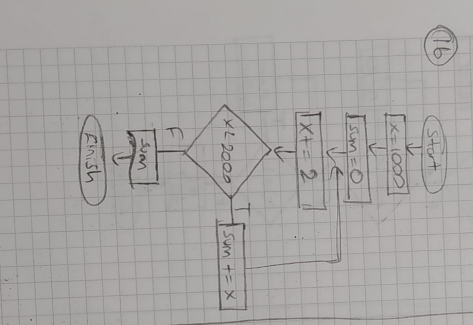 16
Start
x=1000
sum=0
x+=2
x<2000
T
sum+=x
F
sum
Finish